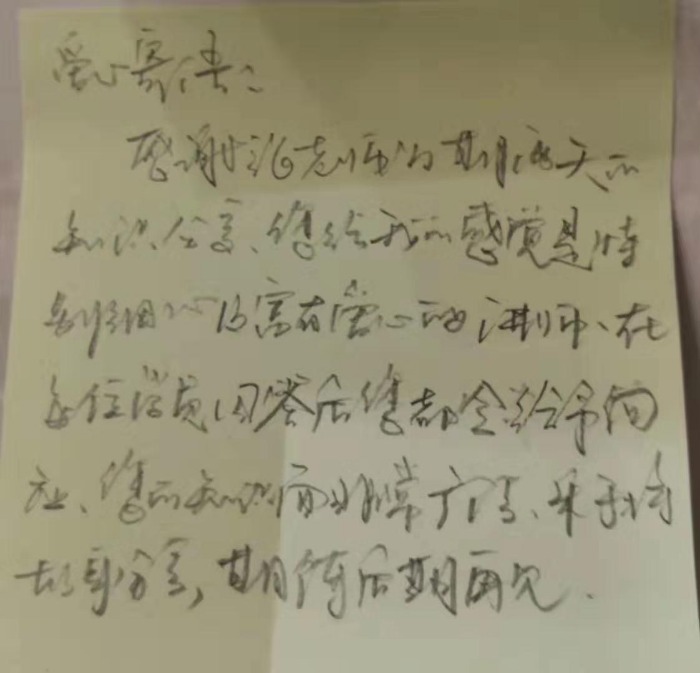 爱心寄语:
感谢 老师为期两天的
知识分享、您给我的感觉是特
别细心及富有爱心的讲师、在
每位学员回答后您都会给予回
应、您的知识面非常广 、乐于
故事分享,期待后期再见.